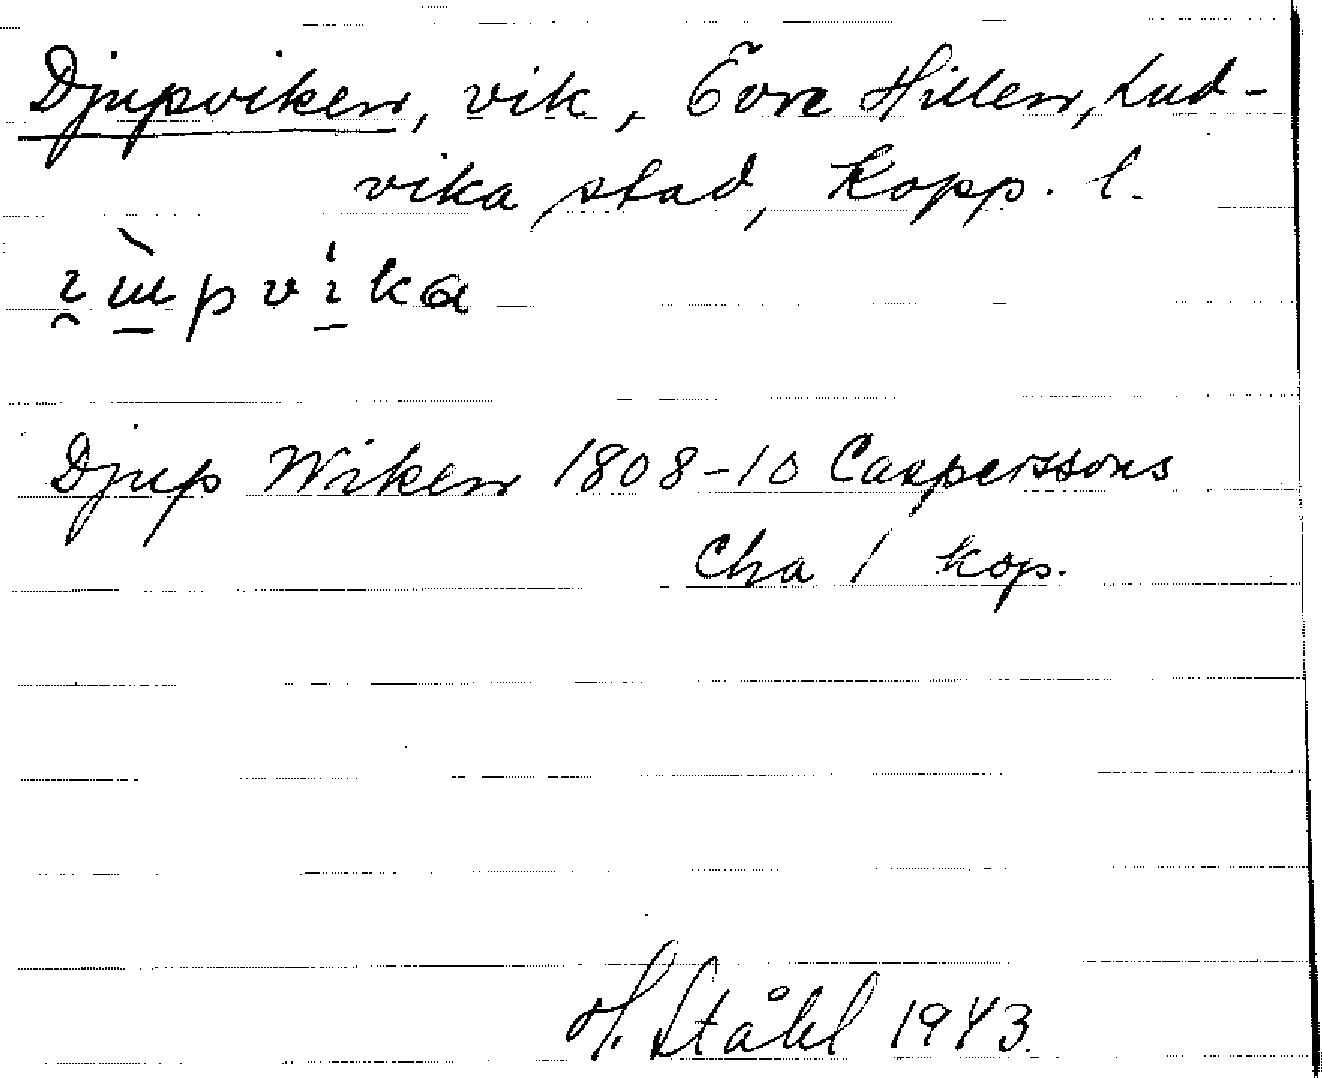 Djupviken, vik, Övre Hillen, Lud-
vika stad, Kopp. l.
Djup Wiken 1808-10 Casperssons
Cha 1 kop.
H. Ståhl 1943.